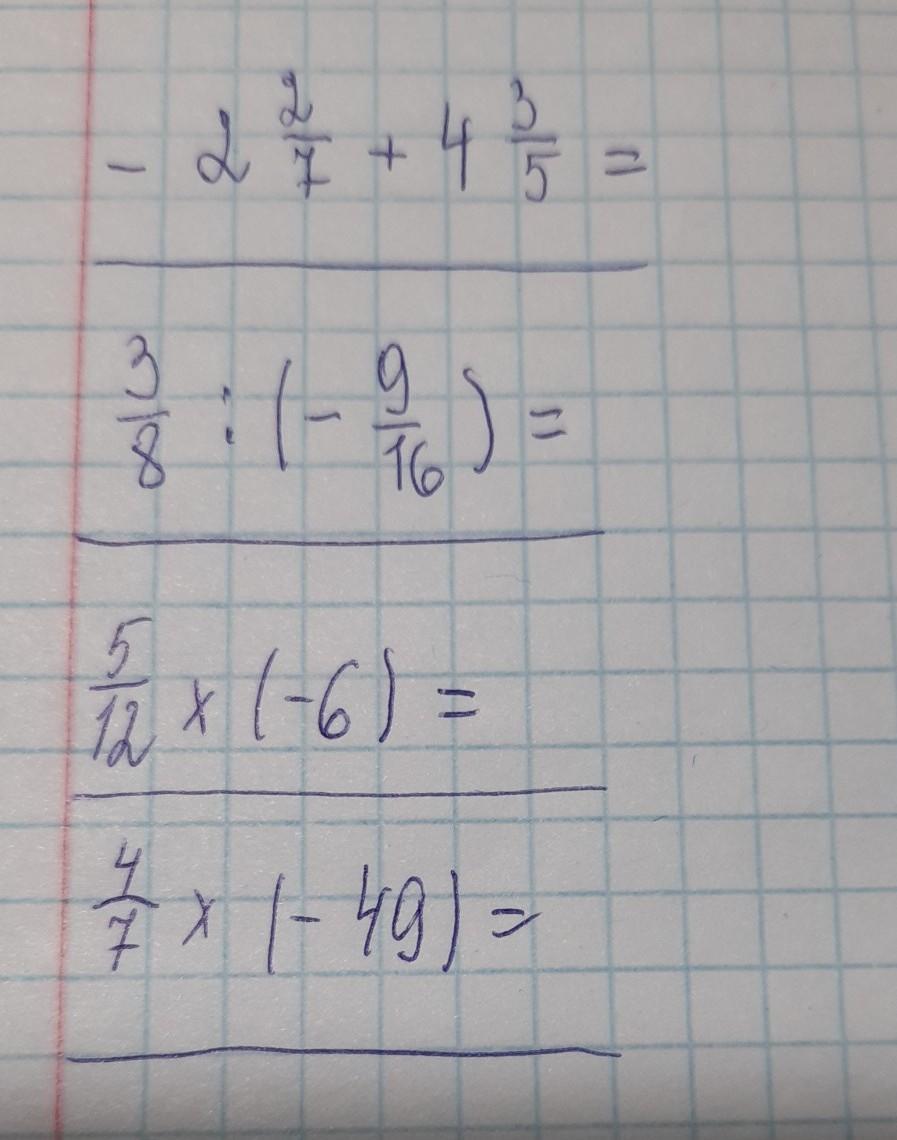 - 2 2/7 + 4 3/5 =
3/8 : (- 9/16) =
5/12 × (-6) =
4/7 × (- 49) =